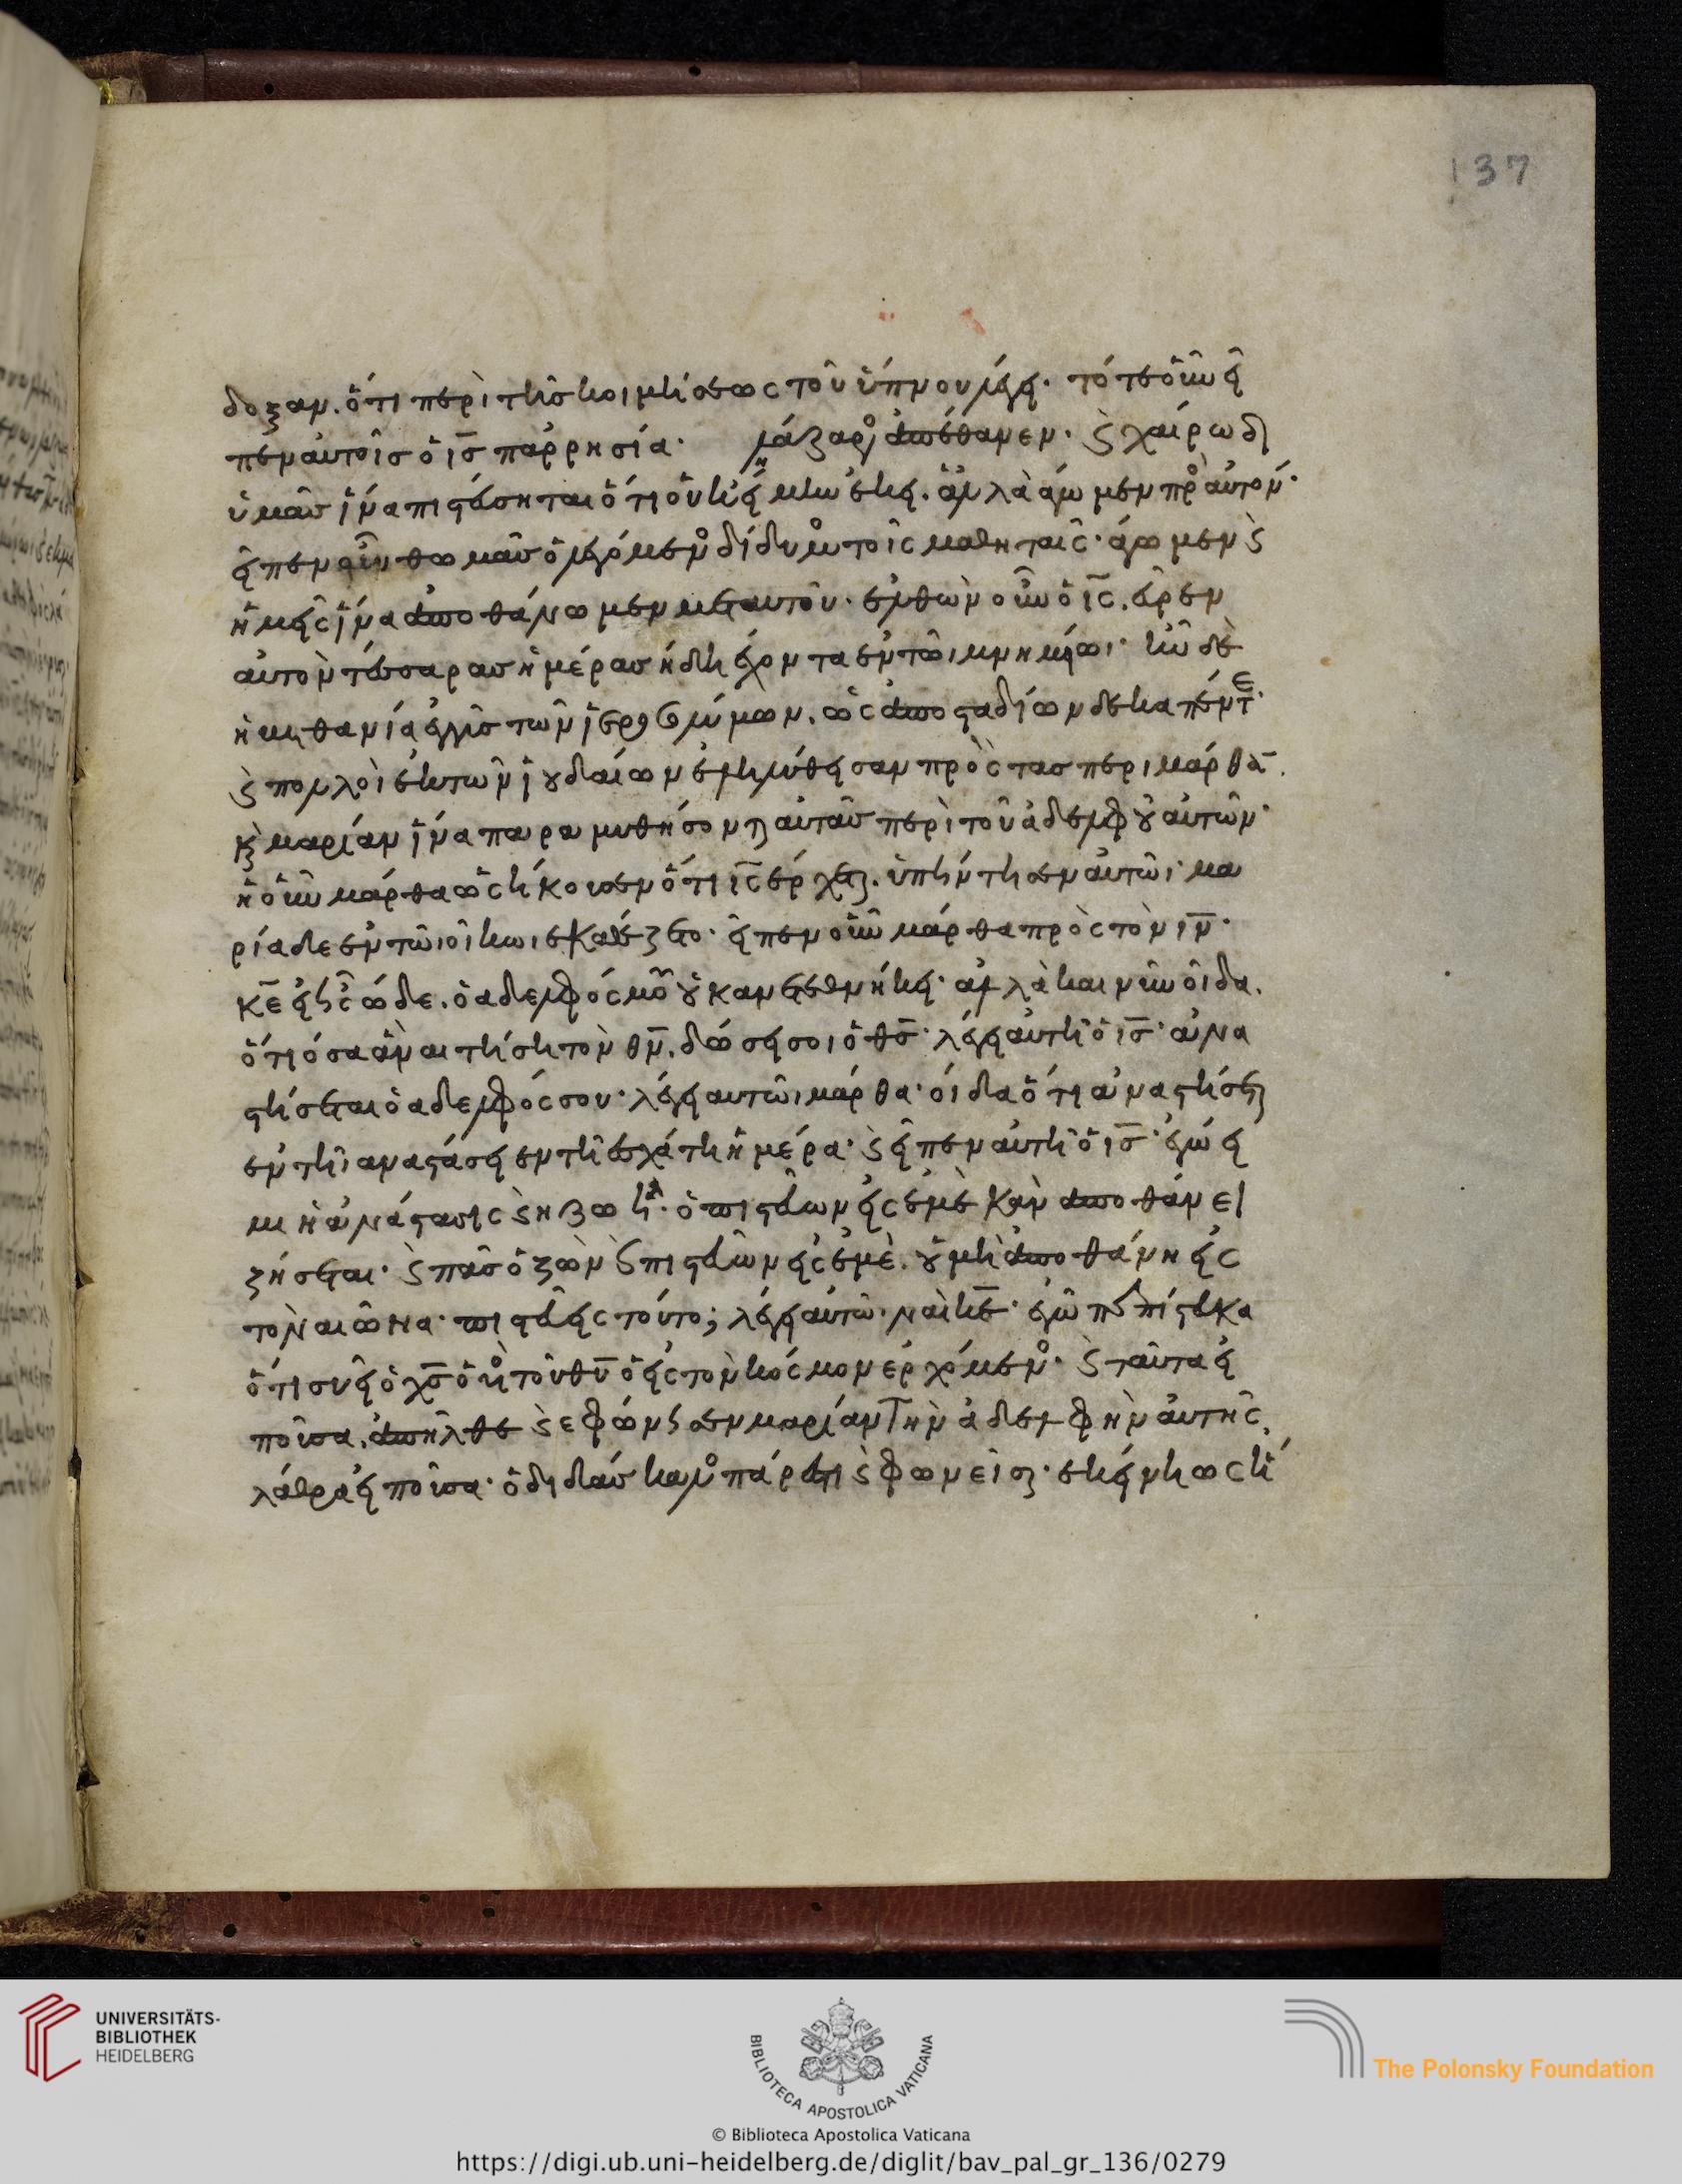 137
δοξαν. ὅτι περὶ τῆσ κοιμήσεως τοῦ ὕπνου λέγει· τότε οὖν εἶ
πεν αὐτοῖσ ὁ ι̅σ̅ παρρησία· λάζαρος ἀπέθανεν· καὶ χαίρω δι
ὑμᾶσ ἵνα πιστεύσηται ὅτι οὐκ ἤμην ἐκεῖ. ἀλλὰ ἄγωμεν πρὸς αὐτόν·
εἶπεν οὖν θωμᾶσ ὁ λεγόμενος δίδυμος τοῖς μαθηταῖς· ἄγωμεν καὶ
ἡμεῖς ἵνα ἀποθάνωμεν μεταυτοῦ· ἐλθὼν οὖν ὁ ι̅ς̅. εὗρεν
αὐτὸν τέσσαρασ ἡμέρασ ήδη ἔχοντα ἐν τῶι μνημείωι· ἦν δὲ
ἡ βηθανία ἐγγὺσ τῶν ἱεροσολύμων. ὡς ἀπο σταδίων δεκαπέντε·
καὶ πολλοὶ ἐκ τῶν ἰουδαίων ἐληλύθεισαν πρὸς τασ περι μάρθα̅.
κ̀ μαρίαν ἵνα παραμυθήσονται αὐτὰσ περὶ τοῦ ἀδελφοῦ αὐτῶν·
ἡ οὖν μάρθα ὡς ἤκουσεν ὅτι ι̅ς̅ ἔρχεται. ὑπήντησεν αὐτῶι· μα
ρία δε ἐν τῶι οἴκωι ἐκαθέζετο· εἶπεν οὖν μάρθα πρὸς τὸν ι̅ν̅·
κ̅ε̅ εἰ ἦς ὧδε. ὁ αδελφός μου οὐκ αν ετεθνήκει· ἀλλὰ και νῦν οἶδα.
ὅτι όσα ἂν αιτήση τὸν θ̅ν̅. δώσει σοι ὁ θ̅σ̅· λέγει αὐτῆ ὁ ι̅σ̅· ἀνα
στήσεται ὁ αδελφός σου· λέγει αυτῶι μάρθα· οίδα ὅτι ἀναστήσεται
ἐν τῆι αναστάσει εν τῆ ἐσχάτη ἡμέρα· καὶ εἶπεν αὐτῆ ὁ ι̅σ̅· ἐγώ εἰ
μι ἡ ἀνάστασις καὶ η ζωή· ὁ πιστεύων εἰς ἐμὲ κἂν ἀποθάνει
ζήσεται· καὶ πᾶσ ὁ ζῶν καὶ πιστεύων εἰς ἐμὲ. οὐ μὴ ἀποθάνη εἰς
τὸν αιῶνα· πιστεύεις τοῦτο; λέγει αὐτῶ· ναὶ κ̅ε̅· ἐγὼ πεπίστευκα
ὅτι σὺ εἶ ὁ χ̅σ̅ ὁ υἱὸς τοῦ θ̅υ̅ ὁ εἰς τον κόσμον ερχόμενος· καὶ ταῦτα εἰ
ποῦσα. ἀπῆλθε καὶ εφώνησεν μαρίαν τὴν ἀδελφὴν αὐτῆς.
λάθρα εἰποῦσα· ὁ διδάσκαλος πάρεστι καὶ φωνεῖ σε· ἐκείνη ὡς ἤ
UNIVERSITÄTS-
BIBLIOTHEK
HEIDELBERG
BIBLIOTECA APOSTOLICA VATICANA
The Polonsky Foundation
© Biblioteca Apostolica Vaticana
https://digi.ub.uni-heidelberg.de/diglit/bav_pal_gr_136/0279